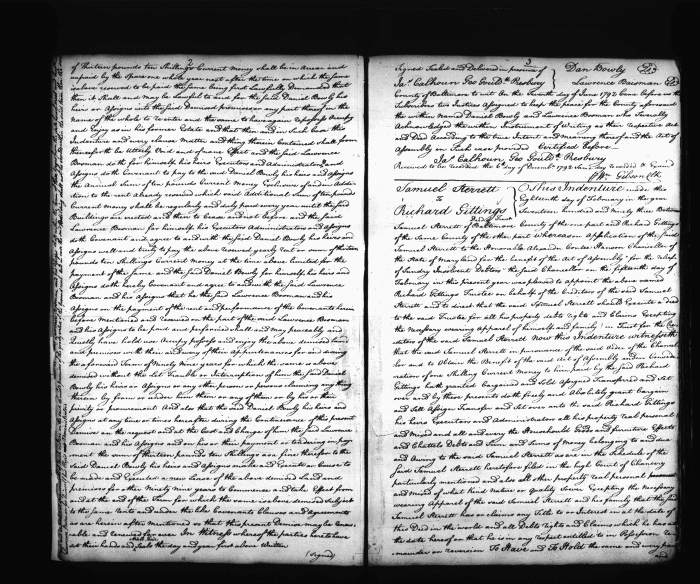 2
of thirteen pounds ten Shillings Current money shall be in arrear and
unpaid by the space one whole year next after the time on which the same
is above reserved to be paid the same being first Lawfully Demanded that
then it Shall and may be lawful to and for the said Daniel Bowly his
heirs or Assigns into the said Demised premises or any part thereof in the
name of the whole to reenter and the same to have again repossess occupy
and Enjoy as in his former Estate and that then and in Such Case this
Indenture and every clause matter and thing therein contained shall from
thenceforth be utterly Void and of none Effect and the said Lawrence
Bowman doth for himself his heirs Executors and Administrators and
Assigns doth Covenant to pay to the said Daniel Bowly his heirs and Assigns
the Annual Sum of ten pounds Current money Exclusive of and in Addi
tion to the rent already reserved which said Additional Sum of ten pounds
Current money shall be regularly and duly paid every year until the said
Buildings are erected and then to Cease and not before and the said
Lawrence Bowman for himself his Executors Administrators and Assigns
do the Covenant and agree to and with the said Daniel Bowly his heirs and
Assigns well and truly to pay the above reserved yearly rent or sum of thirteen
pounds ten Shillings Current money at the time above limited for the
payment of the same and the said Daniel Bowly for himself his heirs and
Assigns doth hereby Covenant and agree to and with the said Lawrence
Bowman and his Assigns that he the said Lawrence Bowman and his
Assigns on the payment of the rent and performance of the Covenants herein
before mentioned and Contained on the part of the said Lawrence Bowman
and his Assigns to be paid and performed shall and may peaceably and
Quietly have hold use occupy possess and enjoy the above demised land
and premises with their and every of their Appurtenances for and during
the aforesaid Term of Ninety Nine years for which the same is above
demised without the Let Trouble or Interruption of him the said Daniel
Bowly his heirs or Assigns or any other person or persons claiming any thing
therein by from or under him them or any of them or by his or their
privity or procurement And also that the said Daniel Bowly his heirs and
Assigns at any time or times hereafter during the Continuance of this present
Demise on the request and at the Cost and Charges of him the said Lawrence
Bowman and his Assigns and on his or their payment or tendering in pay
ment the sum of thirteen pounds ten Shillings as a fine therefor to the
said Daniel Bowly his heirs and Assigns make and Execute or Cause to
be made and Executed a new Lease of the above demised Land and
premises for other Ninety Nine years to commence and take Effect from
and at the end of the Term for which the same is above demised Subject
to the same Rents and under the like Covenants Clauses and Agreements
as are herein after mentioned so that this present Demise may be renew
able and renewed for ever In Witness whereof the parties hereto have
set their hands and Seals the day and year first above Written
(Signed)
3
Signed Sealed and Delivered in presence of
Jas Calhoun Geo Gould: Presbury
Dan Bowly
Lawrence Bowman
County of Baltimore to wit On the Twelfth day of June 1792 Came before us the
Subscribers two Justices Assigned to keep the peace for the County aforesaid
the within Named Daniel Bowly and Lawrence Bowman who Severally
Acknowledged the within Instrument of Writing as their respective Act
and Deed According to the true Intent and Meaning thereof and the Act of
Assembly in Such case provided Certified before
Jas Calhoun Geo Gould: Presbury
Received to be recorded the 6 day of December 1792 Same day recorded & Examd
Wm Gibson Clk
Samuel Sterrett
To
Richard Gittings
This Indenture made this
Eighteenth day of February in the year
Seventeen hundred and Ninety three Between
Samuel Sterrett of Baltimore County of the one part and Richard Gittings
of the Same County of the other part Whereas on Application of the said
Samuel Sterrett to the Honorable Alexander Contee Hanson Chancellor of
the State of Maryland for the benefit of the Act of Assembly for the relief
of Sundry Insolvent Debtors the said Chancellor on the fifteenth day of
February in this present year was pleased to appoint the above named
Richard Gittings Trustee on behalf of the Creditors of the said Samuel
Sterrett and to direct that the said Samuel Sterrett should Execute a deed
to the said Trustee for all his property debts rights and Claims Excepting
the necessary wearing apparel of himself and family in Trust for the Cre
ditors of the said Samuel Sterrett Now this Indenture witnesseth
that the said Samuel Sterrett in pursuance of the said order of the Chancel
lor and to Obtain the Benefit of the said act of Assembly and in Conside
ration of one Shilling Current Money to him paid by the said Richard
Gittings hath granted bargained and Sold Assigned Transferred and Set
over and by these presents doth freely and Absolutely grant bargain
and Sell Assign Transfer and Set over unto the said Richard Gittings
his heirs Executors and Administrators all his property real personal
and Mixed and all and every the Household Goods and furniture Effects
and Chattels Debts and Sum and Sums of Money belonging to and due
and Owing to the said Samuel Sterrett as in the Schedule of the
said Samuel Sterrett heretofore filed in the high Court of Chancery
particularly mentioned and also all other property real personal
and Mixed of what kind Nature or Quality Soever Excepting the necessary
wearing Apparel of the said Samuel Sterrett and his family that the said
Samuel Sterrett has or claims any Title to or Interest in at the date of
this Deed in the world and all Debts rights and Claims which he has at
the date hereof on that he is in any respect entitled to in Possession Re
mainder or reversion To Have and To Hold the same and every part